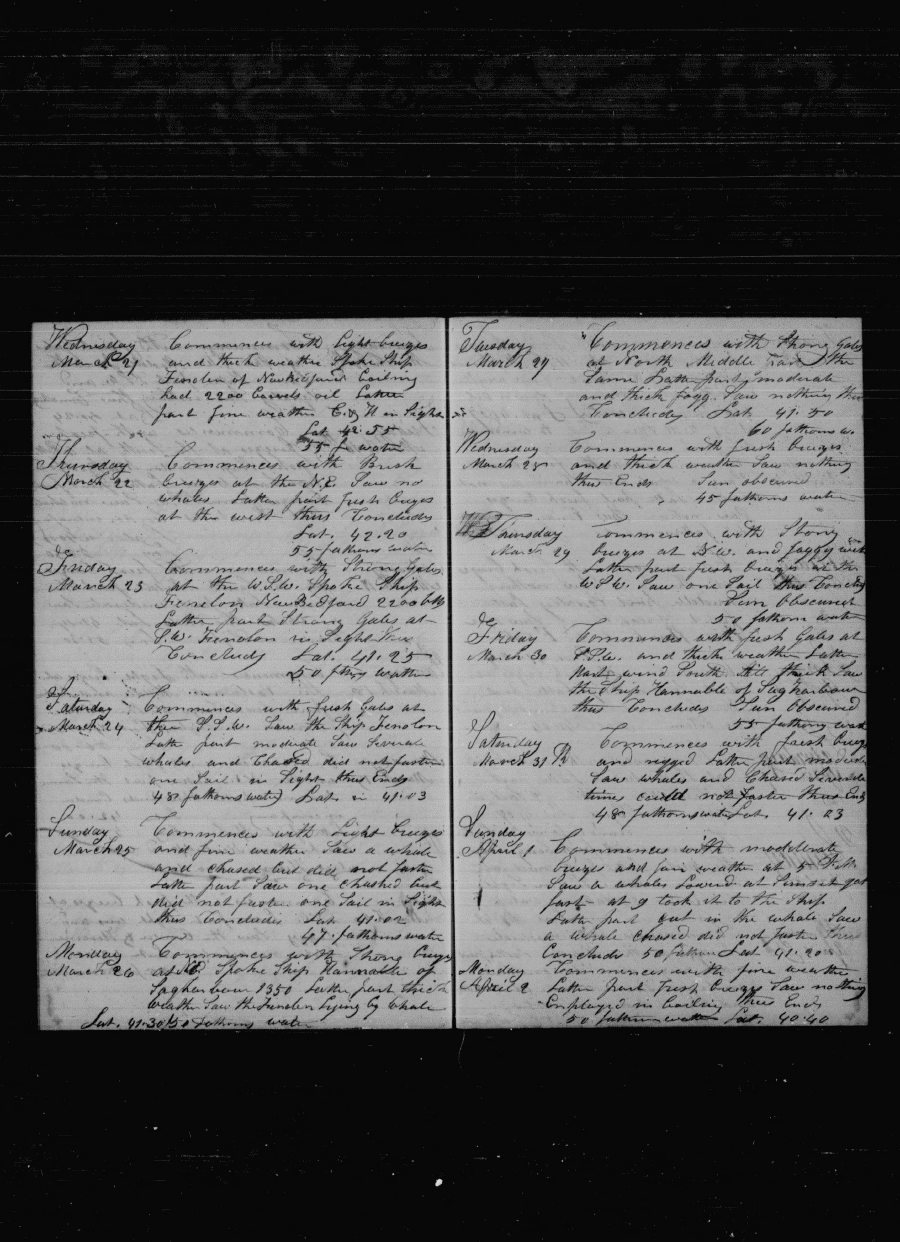 Wednesday Commences with light breezes
March 21 and thick weather Spoke Ship
Fenelon of New Bedford Boiling
had 2200 barrels oil Latter
part fine weather C. & H in Sight
Lat 42.55
55 fm water
Thursday Commences with Brisk
March 22 breezes at the N.E. Saw no
whales Latter part fresh breezes
at the west thus Concludes
Lat. 42.20
55 fathoms water
Friday Commences with Strong Gales
March 23 at the W.S.W. Spoke Ship
Fenelon New Bedford 2200 bbls
Latter part Strong Gales at
S.W. Fenelon in Sight thus
Concluds Lat. 41.25
50 fthms water
Saturday Commences with fresh Gales at
March 24 the S.S.W. Saw the Ship Fenelon
Latter part moderate Saw Severale
whales and Chased did not fasten
one Sail in Sight thus Ends
48 fathoms water Lat. in 41.03
Sunday Commences with Light breezes
March 25 and fine weather Saw a whale
and chased but did not fasten
Latter part Saw one chashed but
did not fasten one Sail in Sight
thus Concludes Lat 41.02
47. fathoms water
Monday Commences with Strong breezes
March 26 at N.E. Spoke Ship Hannable of
Sagharbour 1350 Latter part thick
weather Saw the Fenelon Lying by whale
Lat. 41.30 50 fathoms water
Tuesday Commences with Strong Gales
March 27 at North Middle Part the
Same Latter part moderate
and thick fogg. Saw nothing thus
Concludes Lat 41.50
60 fathoms w.
Wednesday Commences with fresh breezes
March 28 and thick weather Saw nothing
thus Ends Sun obscured
45 fathoms water
Thursday Commences with Strong
March 29 breezes at N.W. and foggy
Latter part fresh breezes at the
W.S.W. Saw one Sail thus Concluds
Sun Obscured
50 fathom water
Friday Commences with fresh Gales at
March 30 S.S.W. and thick weather Latter
Part wind South thick Saw
the Ship Hannable of Sagharbour
thus Concludes Sun Obscured
55 fathoms water
Saturday Commences with fresh breezes
March 31 and rugged Latter part moderate
Saw whales and Chased Severale
times could not faster thus Ends
48 fathoms water Lat. 41.23
Sunday
April 1 Commences with modderate
breezes and fair weather at 5 P.M.
Saw a whales Lowerd at Sunset got
fast at 9 took it to the Ship
Latter part cut in the whale Saw
a whale chased did not faster thus
Concludes 50 fathom Lat 41.20
Monday Commences with fine weather
April 2 Latter part Fresh breezes Saw nothing
Employed in boiling thus Ends
50 fathom water Lat. 40.40